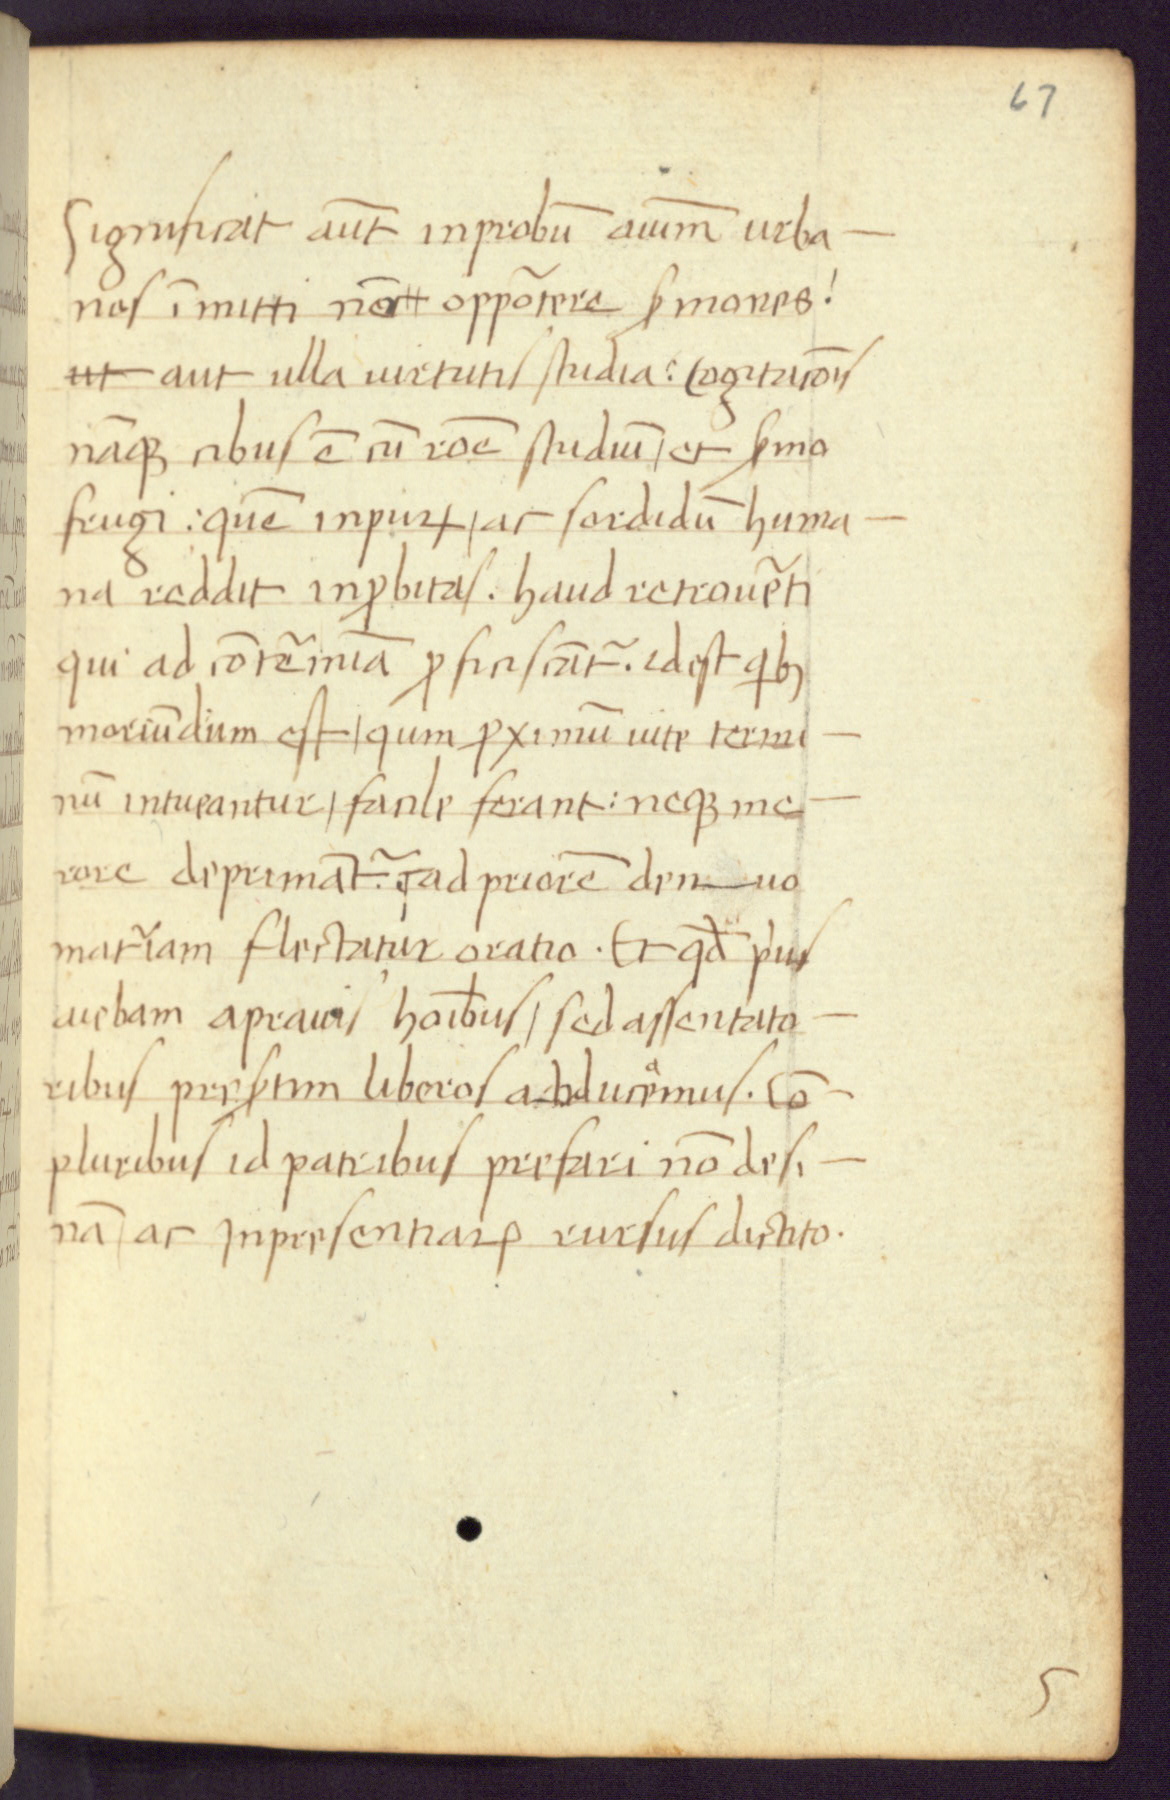 67
Significat aūt inprobū aiūm urba—
nos ī mitti nō oppõtere ꝑmones!
ut aut ulla uirtutis studia: Cogitatiōis
nāqꝫ cibus ē cū roē studiū / et ꝑmo
frugi: quē inpuꝝ / ac sordidū huma—
na reddit inꝓbitas. haud retrouẽti
qui ad cōtẽiniā ꝓficiscāt̃. id est qibꝫ
moriūdum est / qum ꝓximū uite termi—
nū intueantur / facile ferant: neqꝫ me—
rore deprimāt̃. Ꝗ ad priorē den—uo
mat̃iam flectatur oratio. Et qđ pius
aiebam aprauis hoībus / sed assentato—
ribus preꝑtim liberos abducamus. Cō—
pluribus id patribus prefari nō desi—
nā / ac Inpresentiaꝝ rursus dictito.
5